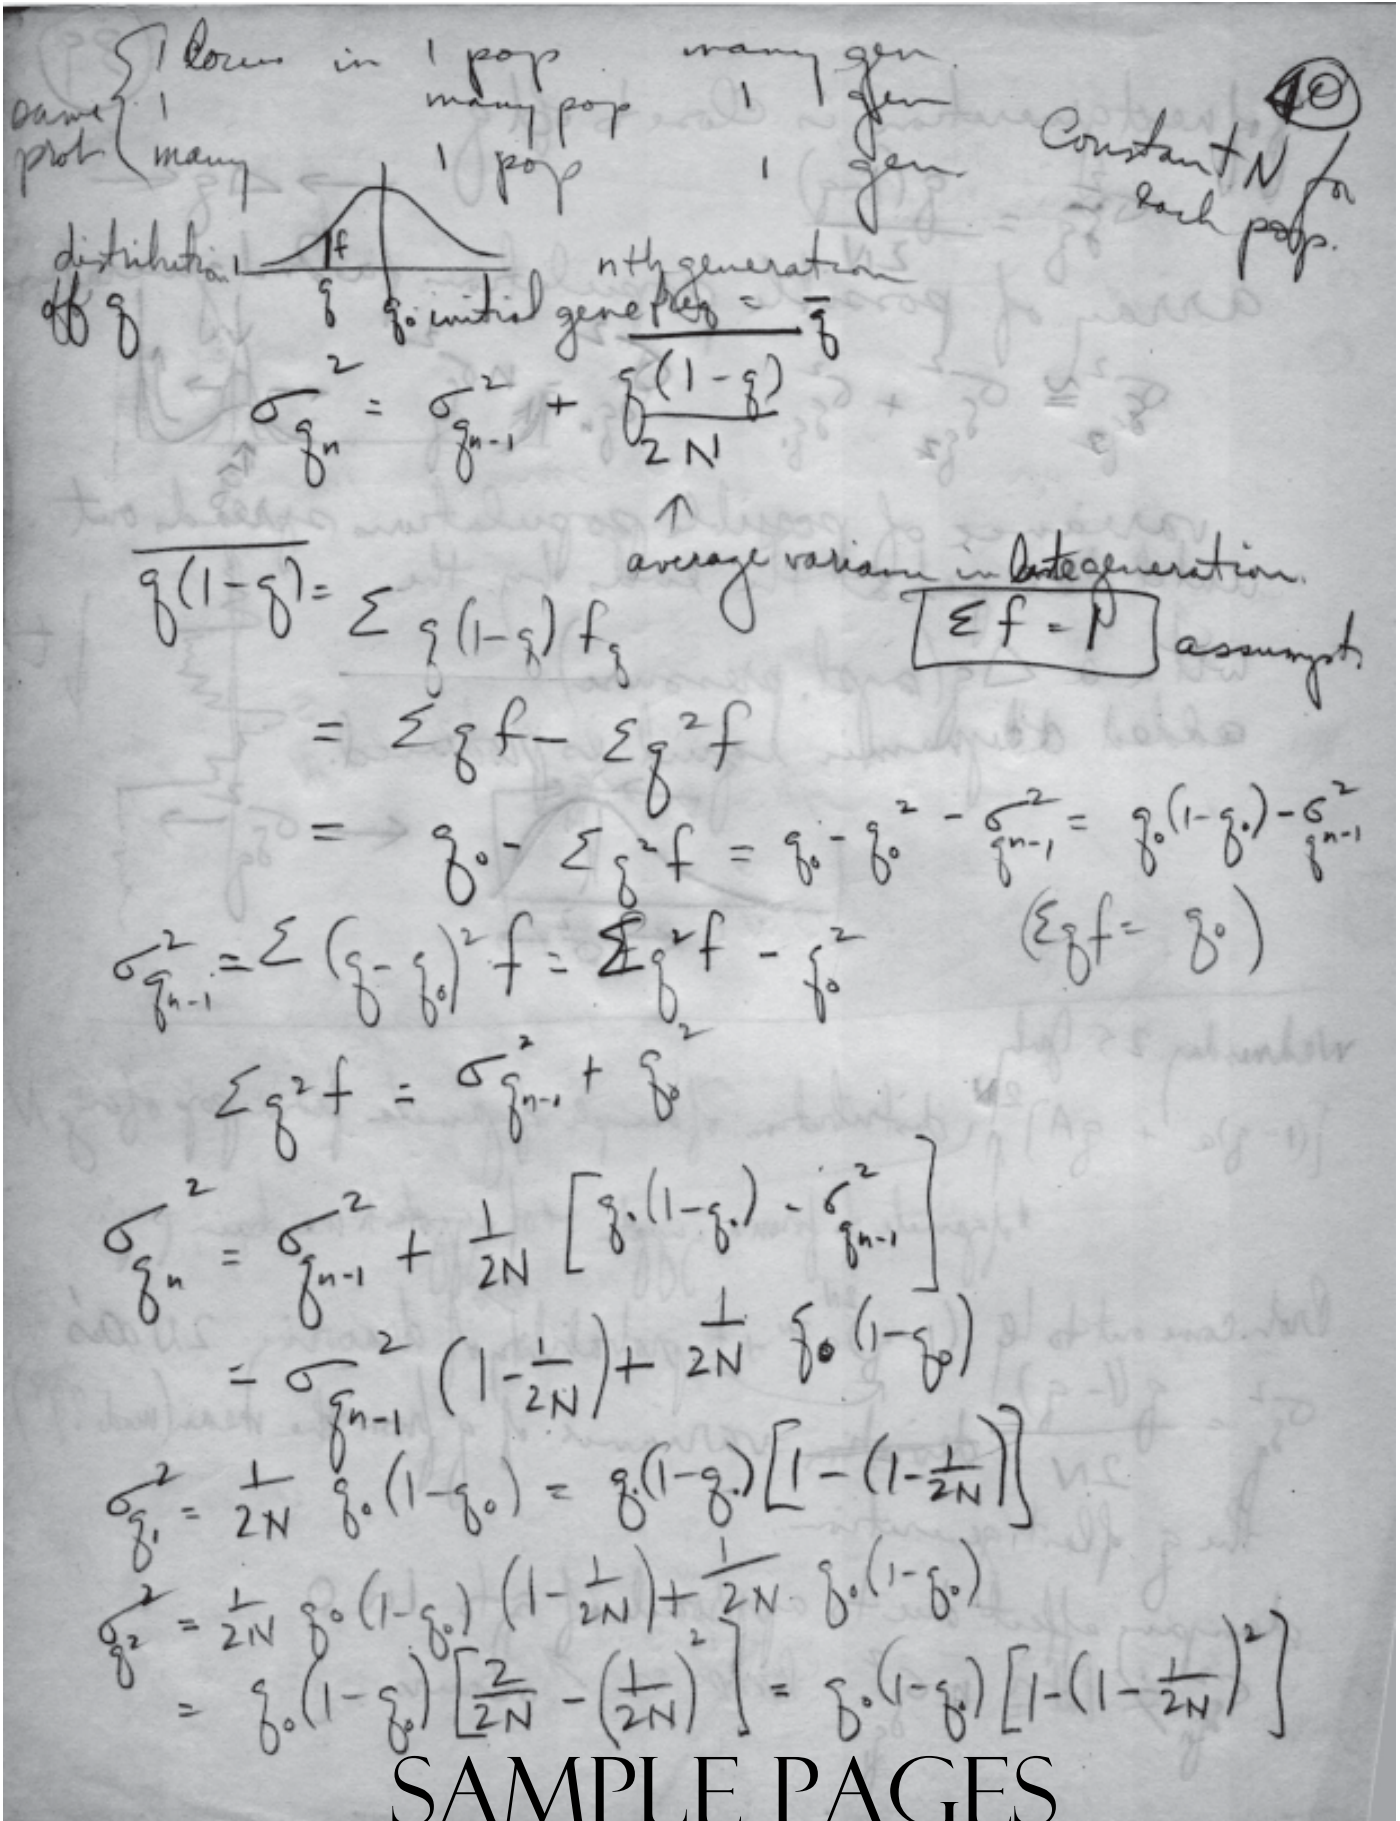 1 locus in 1 pop many gen.
same 1 many pop 1 gen
prob many 1 pop 1 gen
40
Constant N for
each pop.
distribution f nth generation
off q q q₀ initial gene freq = q̄
σ²_qₙ = σ²_qₙ₋₁ + \overline{q(1-q)} / 2N
↑
average variance in generation.
\overline{q(1-q)} = Σ q(1-q) f_q
Σ f = 1 assumpt.
= Σ q f - Σ q² f
= q₀ - Σ q² f = q₀ - q₀² - σ²_qₙ₋₁ = q₀(1-q₀) - σ²_qₙ₋₁
(Σ q f = q₀)
σ²_qₙ₋₁ = Σ (q - q₀)² f = Σ q² f - q₀²
Σ q² f = σ²_qₙ₋₁ + q₀²
σ²_qₙ = σ²_qₙ₋₁ + 1/2N [q₀(1-q₀) - σ²_qₙ₋₁]
= σ²_qₙ₋₁ (1 - 1/2N) + 1/2N q₀(1-q₀)
σ²_q₁ = 1/2N q₀(1-q₀) = q₀(1-q₀) [1 - (1 - 1/2N)]
σ²_q₂ = 1/2N q₀(1-q₀) (1 - 1/2N) + 1/2N q₀(1-q₀)
= q₀(1-q₀) [2/2N - (1/2N)²] = q₀(1-q₀) [1 - (1 - 1/2N)²]
SAMPLE PAGES